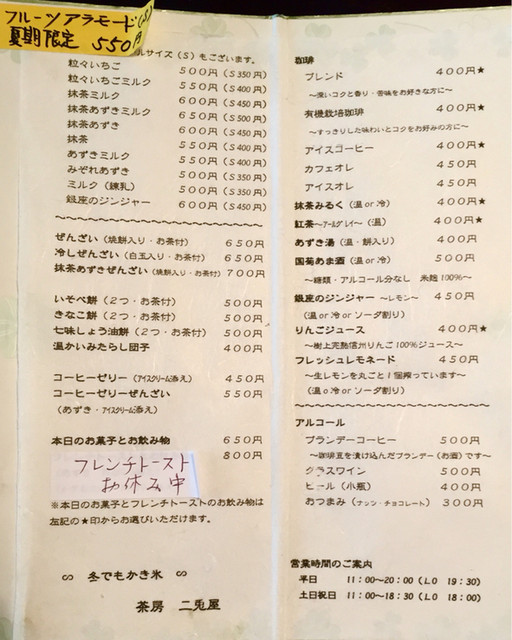 フルーツアラモード
夏期限定 550円
ルサイズ(S)もございます。
粒々いちご 500円(S350円)
粒々いちごミルク 550円(S400円)
抹茶ミルク 600円(S450円)
抹茶あずきミルク 650円(S500円)
抹茶あずき 600円(S450円)
抹茶 550円(S400円)
あずきミルク 550円(S400円)
みぞれあずき 500円(S350円)
ミルク(練乳) 500円(S350円)
銀座のジンジャー 600円(S450円)
ぜんざい(焼餅入り・お茶付) 650円
冷しぜんざい(白玉入り・お茶付) 650円
抹茶あずきぜんざい(焼餅入り・お茶付) 700円
いそべ餅(2つ・お茶付) 500円
きなこ餅(2つ・お茶付) 500円
七味しょう油餅(2つ・お茶付) 500円
温かいみたらし団子 400円
コーヒーゼリー(アイスクリーム添え) 450円
コーヒーゼリーぜんざい 550円
(あずき・アイスクリーム添え)
本日のお菓子とお飲み物 650円
800円
フレンチトースト
お休み中
※本日のお菓子とフレンチトーストのお飲み物は
左記の★印からお選びいただけます。
∽ 冬でもかき氷 ∽
茶房 二兎屋
珈琲
ブレンド 400円★
～深いコクと香り・苦味をお好きな方に～
有機栽培珈琲 400円★
～すっきりした味わいとコクをお好みの方に～
アイスコーヒー 400円★
カフェオレ 450円
アイスオレ 450円
抹茶みるく(温or冷) 400円★
紅茶～アールグレイ～(温) 400円★
あずき湯(温・餅入り) 400円
国菊あま酒(温or冷) 500円
～糖類・アルコール分なし 米麹100%～
銀座のジンジャー～レモン～ 450円
(温or冷orソーダ割り)
りんごジュース 400円★
～樹上完熟信州りんご100%ジュース～
フレッシュレモネード 450円
～生レモンを丸ごと1個搾っています～
(温o冷orソーダ割り)
アルコール
ブランデーコーヒー 500円
～珈琲豆を漬け込んだブランデー(お酒)です～
グラスワイン 500円
ビール(小瓶) 400円
おつまみ(ナッツ・チョコレート) 300円
営業時間のご案内
平日 11:00～20:00(LO 19:30)
土日祝日 11:00～18:30(LO 18:00)